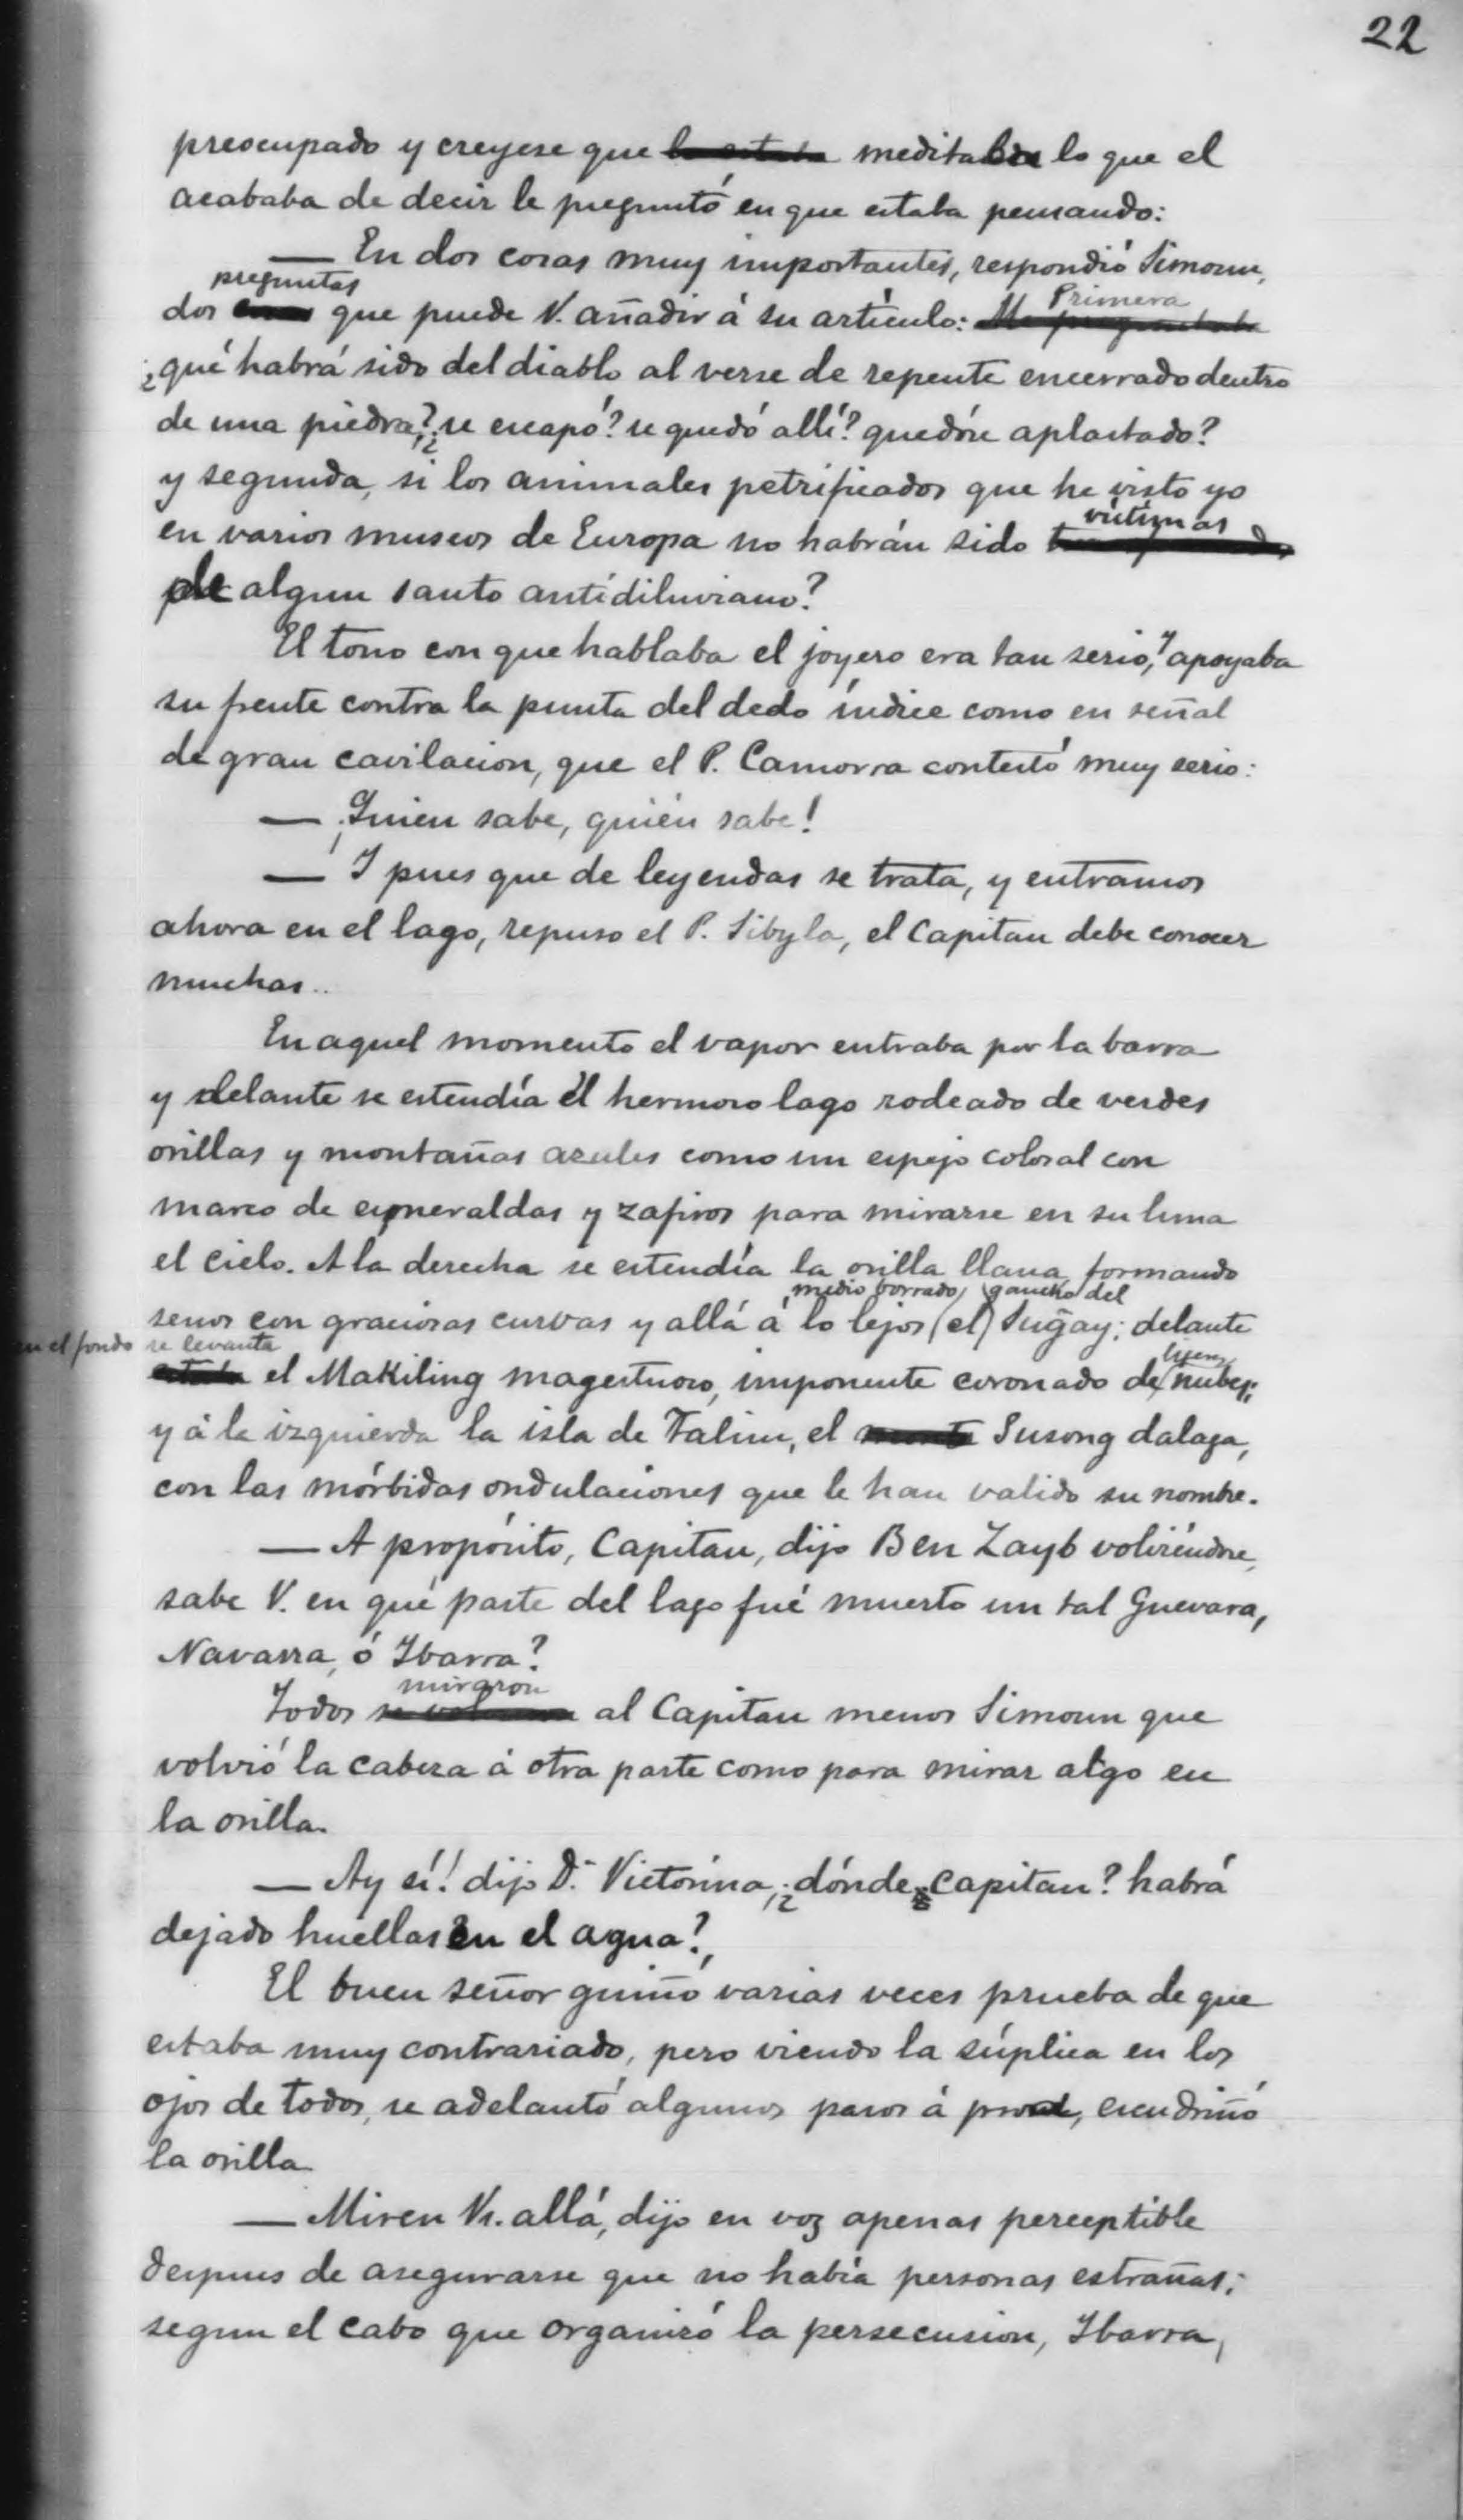 22
preocupado y creyese que meditaba lo que el
acababa de decir le preguntó en que estaba pensando:
— En dos cosas muy importantes, respondió Simoun,
preguntas
dos que puede V. añadir á su artículo: Primera
¿qué habrá sido del diablo al verse de repente encerrado dentro
de una piedra? ¿se escapó? se quedó allí? quedóse aplastado?
y segunda, si los animales petrificados que he visto yo
en varios museos de Europa no habrán sido víctimas
de algun santo antidiluviano?
El tono con que hablaba el joyero era tan serio, y apoyaba
su frente contra la punta del dedo índice como en señal
de gran cavilacion, que el P. Camorra contestó muy serio:
— ¡Quien sabe, quién sabe!
— Y pues que de leyendas se trata, y entramos
ahora en el lago, repuso el P. Sibyla, el Capitan debe conocer
muchas..
En aquel momento el vapor entraba por la barra
y delante se estendía el hermoso lago rodeado de verdes
orillas y montañas azules como un espejo colosal con
marco de esmeraldas y zafiros para mirarse en su luna
el cielo. A la derecha se estendía la orilla llana, formando
medio borrado, gancho del
senos con graciosas curvas y allá á lo lejos (el) Sugay; delante
en el fondo se levanta
el Makiling magestuoso, imponente coronado de ligeras nubes;
y á la izquierda la isla de Talim, el Susong dalaga,
con las mórbidas ondulaciones que le han valido su nombre.
— A propósito, Capitan, dijo Ben Zayb volviéndose,
sabe V. en qué parte del lago fué muerto un tal Guevara,
Navarra, ó Ibarra?
Todos miraron al Capitan menos Simoun que
volvió la cabeza á otra parte como para mirar algo en
la orilla.
— Ay sí! dijo Dª Victorina, ¿dónde, Capitan? habrá
dejado huellas en el agua?,
El buen señor guiñó varias veces prueba de que
estaba muy contrariado, pero viendo la súplica en los
ojos de todos, se adelantó algunos pasos á proa, escudriñó
la orilla
— Miren Vs. allá, dijo en voz apenas perceptible
despues de asegurarse que no había personas estrañas;
segun el cabo que organizó la persecusion, Ibarra,